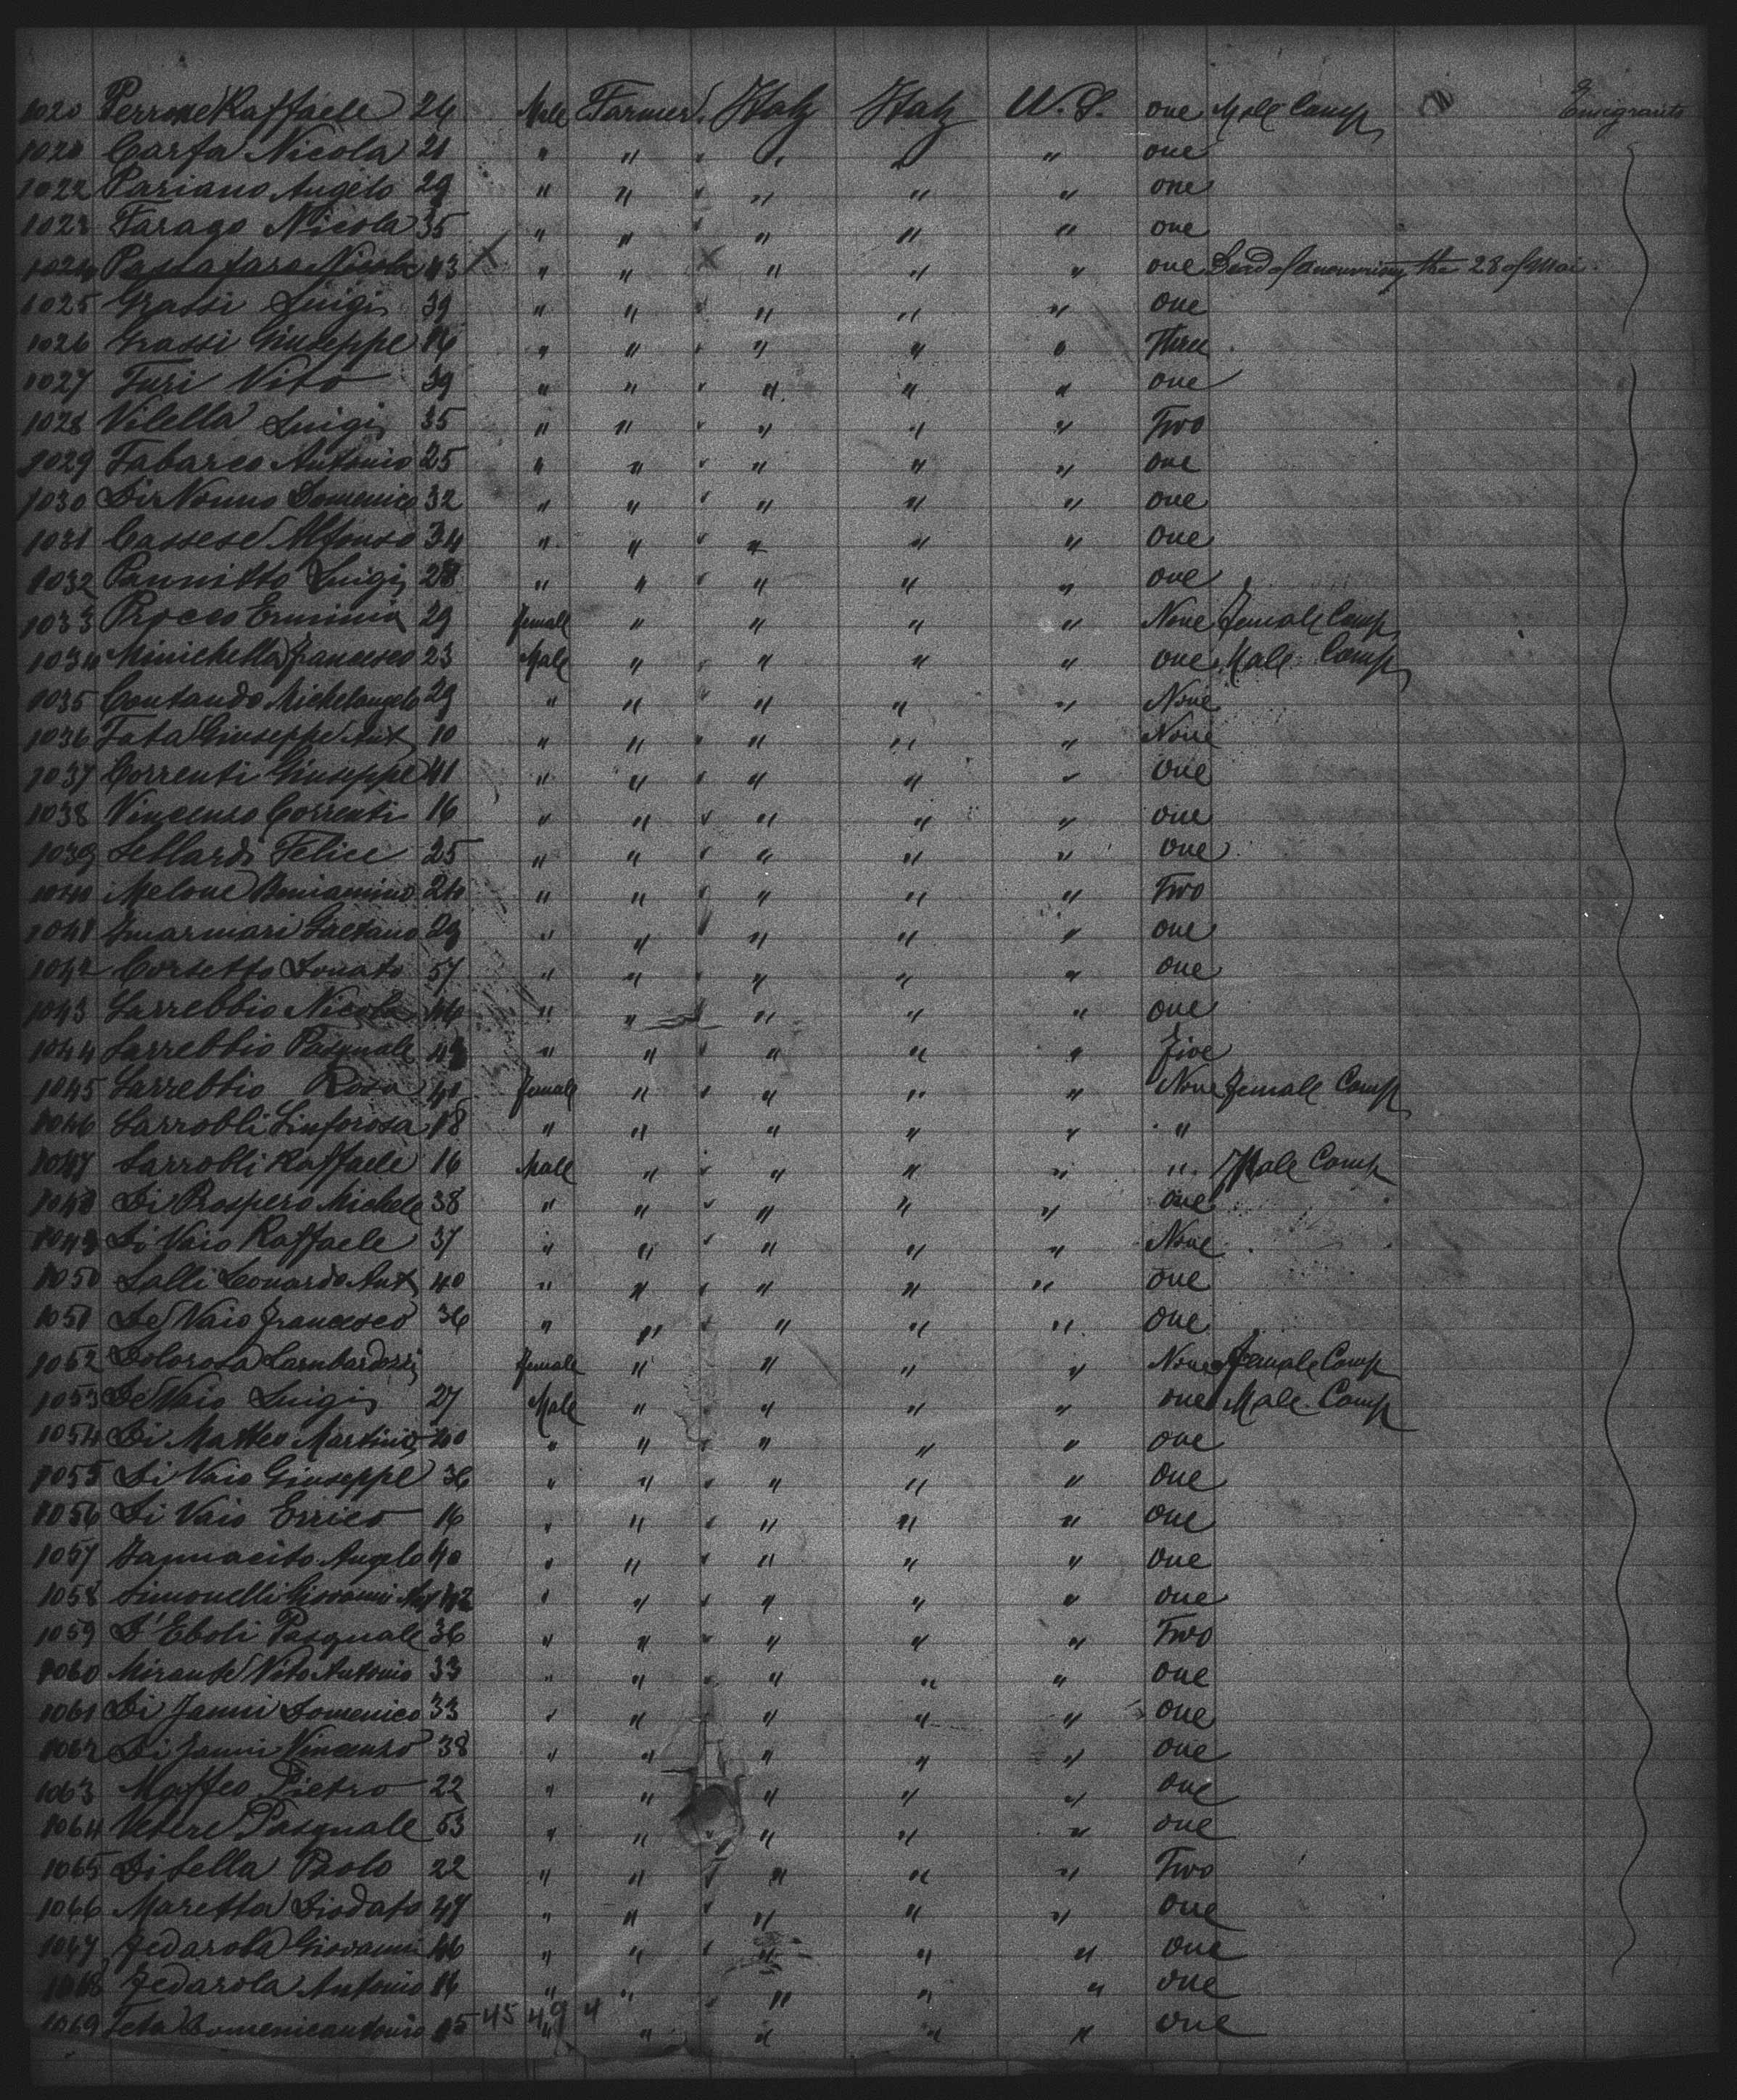 1020 Perrone Raffaele 24 Male Farmer Italy Italy U.S. one Male Comp Emigrants
1021 Carfa Nicola 21 " " " " " one
1022 Pariano Angelo 29 " " " " " one
1023 Farago Nicola 35 " " " " " one
1024 Nicola 43 X " " X " " " one Dead of the 28 of Mai
1025 Grassi Luigi 39 " " " " " one
1026 Grassi Giuseppe 16 " " " " " Three
1027 Turi Vito 39 " " " " " one
1028 Vilella Luigi 35 " " " " " Two
1029 Tabarco Antonio 25 " " " " " one
1030 Domenico 32 " " " " " one
1031 Cassese Alfonso 34 " " " " " one
1032 Pannitto Luigi 28 " " " " " one
1033 Rocco Erminia 29 female " " " " None Female Comp
1034 Minichella Francesco 23 Male " " " " one Male Comp
1035 Contando Michelangelo 29 " " " " " None
1036 Tata Giuseppe Ant 10 " " " " " None
1037 Correnti Giuseppe 41 " " " " " one
1038 Vincenzo Correnti 16 " " " " " one
1039 Felice 25 " " " " " one
1040 Melone Beniamino 24 " " " " " Two
1041 Gaetano 29 " " " " " one
1042 Corsetto Donato 57 " " " " " one
1043 Nicola " " " " " one
1044 Pasquale " " " " " five
1045 Rosa 41 female " " " " None Female Comp
1046 Sinforosa 18 " " " " " "
1047 Raffaele 16 Male " " " " " Male Comp
1048 Di Prospero Michele 38 " " " " " one
1049 Di Vaio Raffaele 37 " " " " " None
1050 Lalli Leonardo Ant 40 " " " " " one
1051 De Vaio Francesco 36 " " " " " one
1052 Dolorosa Lambardozzi female " " " " None Female Comp
1053 De Vaio Luigi 27 Male " " " " one Male Comp
1054 Di Matteo Martino 40 " " " " " one
1055 Di Vaio Giuseppe 36 " " " " " one
1056 Di Vaio Errico 16 " " " " " one
1057 Jannacito Angelo 40 " " " " " one
1058 Simonelli Giovanni Ant 42 " " " " " one
1059 D'Eboli Pasquale 36 " " " " " Two
1060 Mirante Vito Antonio 33 " " " " " one
1061 Di Janni Domenico 33 " " " " " one
1062 Di Janni Vincenzo 38 " " " " " one
1063 Maffeo Pietro 22 " " " " " one
1064 Vetere Pasquale 53 " " " " " one
1065 Di Lella Paolo 22 " " " " " Two
1066 Maretta Diodato 47 " " " " " one
1067 Fedarola Giovanni 46 " " " " " one
1068 Fedarola Antonio 16 " " " " " one
1069 Teta Domenicantonio 45 49 4 " " " " " one